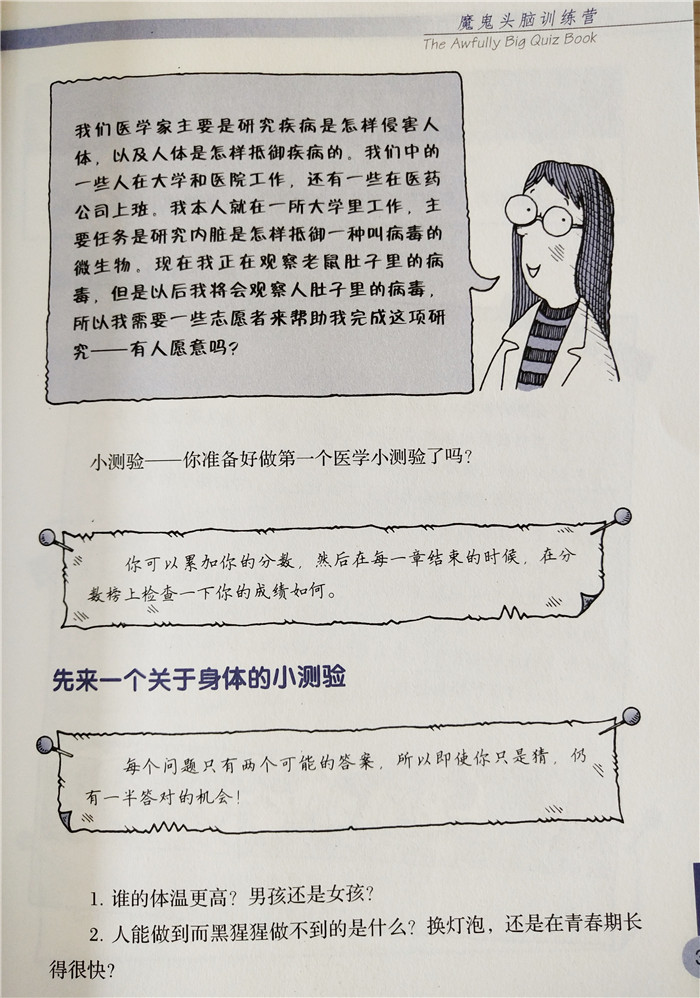 魔鬼头脑训练营
The Awfully Big Quiz Book
我们医学家主要是研究疾病是怎样侵害人
体，以及人体是怎样抵御疾病的。我们中的
一些人在大学和医院工作，还有一些在医药
公司上班。我本人就在一所大学里工作，主
要任务是研究内脏是怎样抵御一种叫病毒的
微生物。现在我正在观察老鼠肚子里的病
毒，但是以后我将会观察人肚子里的病毒，
所以我需要一些志愿者来帮助我完成这项研
究——有人愿意吗？
小测验——你准备好做第一个医学小测验了吗？
你可以累加你的分数，然后在每一章结束的时候，在分
数榜上检查一下你的成绩如何。
先来一个关于身体的小测验
每个问题只有两个可能的答案，所以即使你只是猜，仍
有一半答对的机会！
1. 谁的体温更高？男孩还是女孩？
2. 人能做到而黑猩猩做不到的是什么？换灯泡，还是在青春期长
得很快？